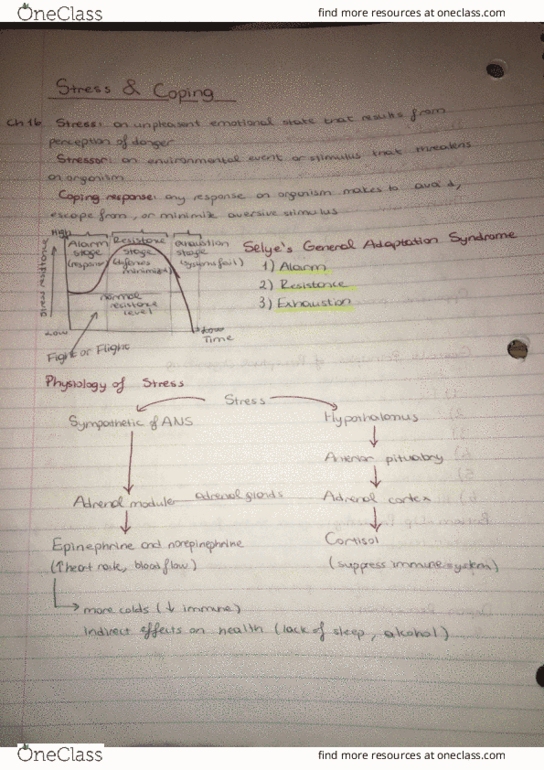 OneClass
find more resources at oneclass.com
Stress & Coping
Ch 16 Stress: an unpleasent emotional state that results from
perception of danger
Stressor: an environmental event or stimulus that threatens
an organism
Coping response: any response an organism makes to avoid,
escape from, or minimize aversive stimulus
High
Alarm stage (response)
Resistance stage (defenses minimized)
exhaustion stage (systems fail)
normal resistance level
stress resistance
Low
Time
Fight or Flight
Selye's General Adaptation Syndrome
1) Alarm
2) Resistance
3) Exhaustion
Physiology of Stress
Stress
Sympathetic of ANS
Hypothalamus
Anterior pituatary
Adrenal modular adrenal glands
Adrenal cortex
Epinephrine and norepinephrine
(↑heart rate, blood flow)
Cortisol
(suppress immune system)
more colds (↓ immune)
Indirect effects on health (lack of sleep, alcohol)
OneClass
find more resources at oneclass.com